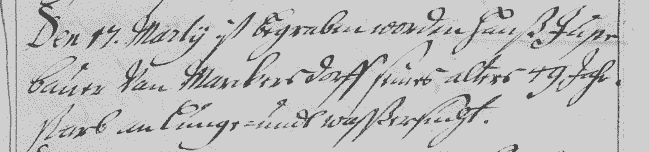 Den 17. Martij ist begraben worden Hanß
bauer Von Marckersdorff seines alters 49 Jahr.
starb an Lunge- und wassersucht.